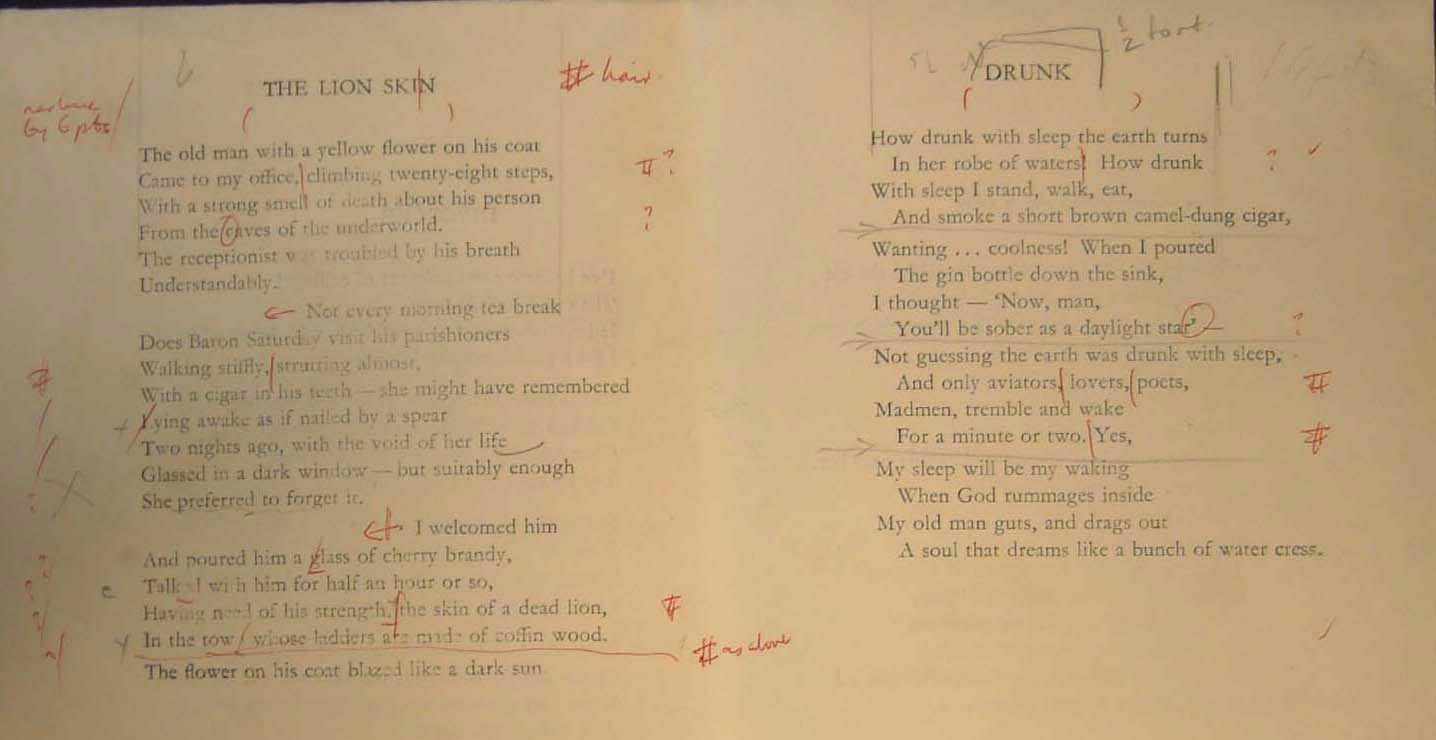 # hair.
THE LION SKIN
by 6 pts
The old man with a yellow flower on his coat
Came to my office, climbing twenty-eight steps,
#?
With a strong smell of death about his person
?
From the caves of the underworld.
The receptionist was troubled by his breath
Understandably.
Not every morning tea break
Does Baron Saturday visit his parishioners
Walking stiffly, strutting almost,
#
With a cigar in his teeth — she might have remembered
Lying awake as if nailed by a spear
Two nights ago, with the void of her life
Glassed in a dark window — but suitably enough
She preferred to forget it.
I welcomed him
And poured him a glass of cherry brandy,
Talked with him for half an hour or so,
Having need of his strength, the skin of a dead lion,
#
In the town whose ladders are made of coffin wood.
# as above
The flower on his coat blazed like a dark sun.
½ font.
DRUNK
How drunk with sleep the earth turns
In her robe of waters! How drunk
?
With sleep I stand, walk, eat,
And smoke a short brown camel-dung cigar,
Wanting . . . coolness! When I poured
The gin bottle down the sink,
I thought — ‘Now, man,
You'll be sober as a daylight star’ —
?
Not guessing the earth was drunk with sleep,
And only aviators, lovers, poets,
#
Madmen, tremble and wake
For a minute or two. Yes,
#
My sleep will be my waking
When God rummages inside
My old man guts, and drags out
A soul that dreams like a bunch of water cress.